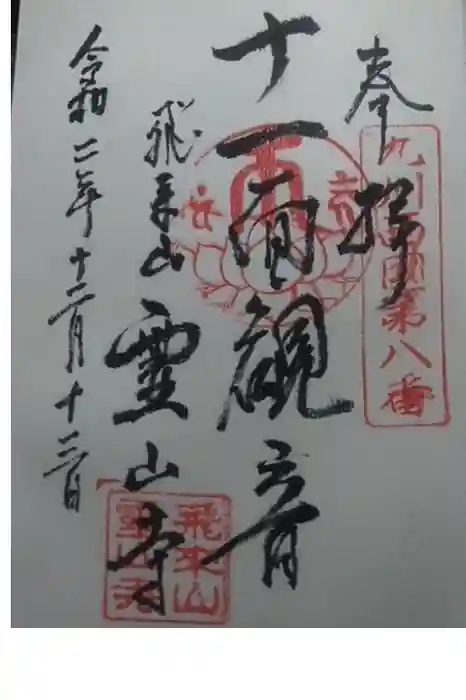 奉拝
九州西国第八番
十一面観音
飛来山
霊山寺
飛来山
霊山寺
令和二年十二月十三日